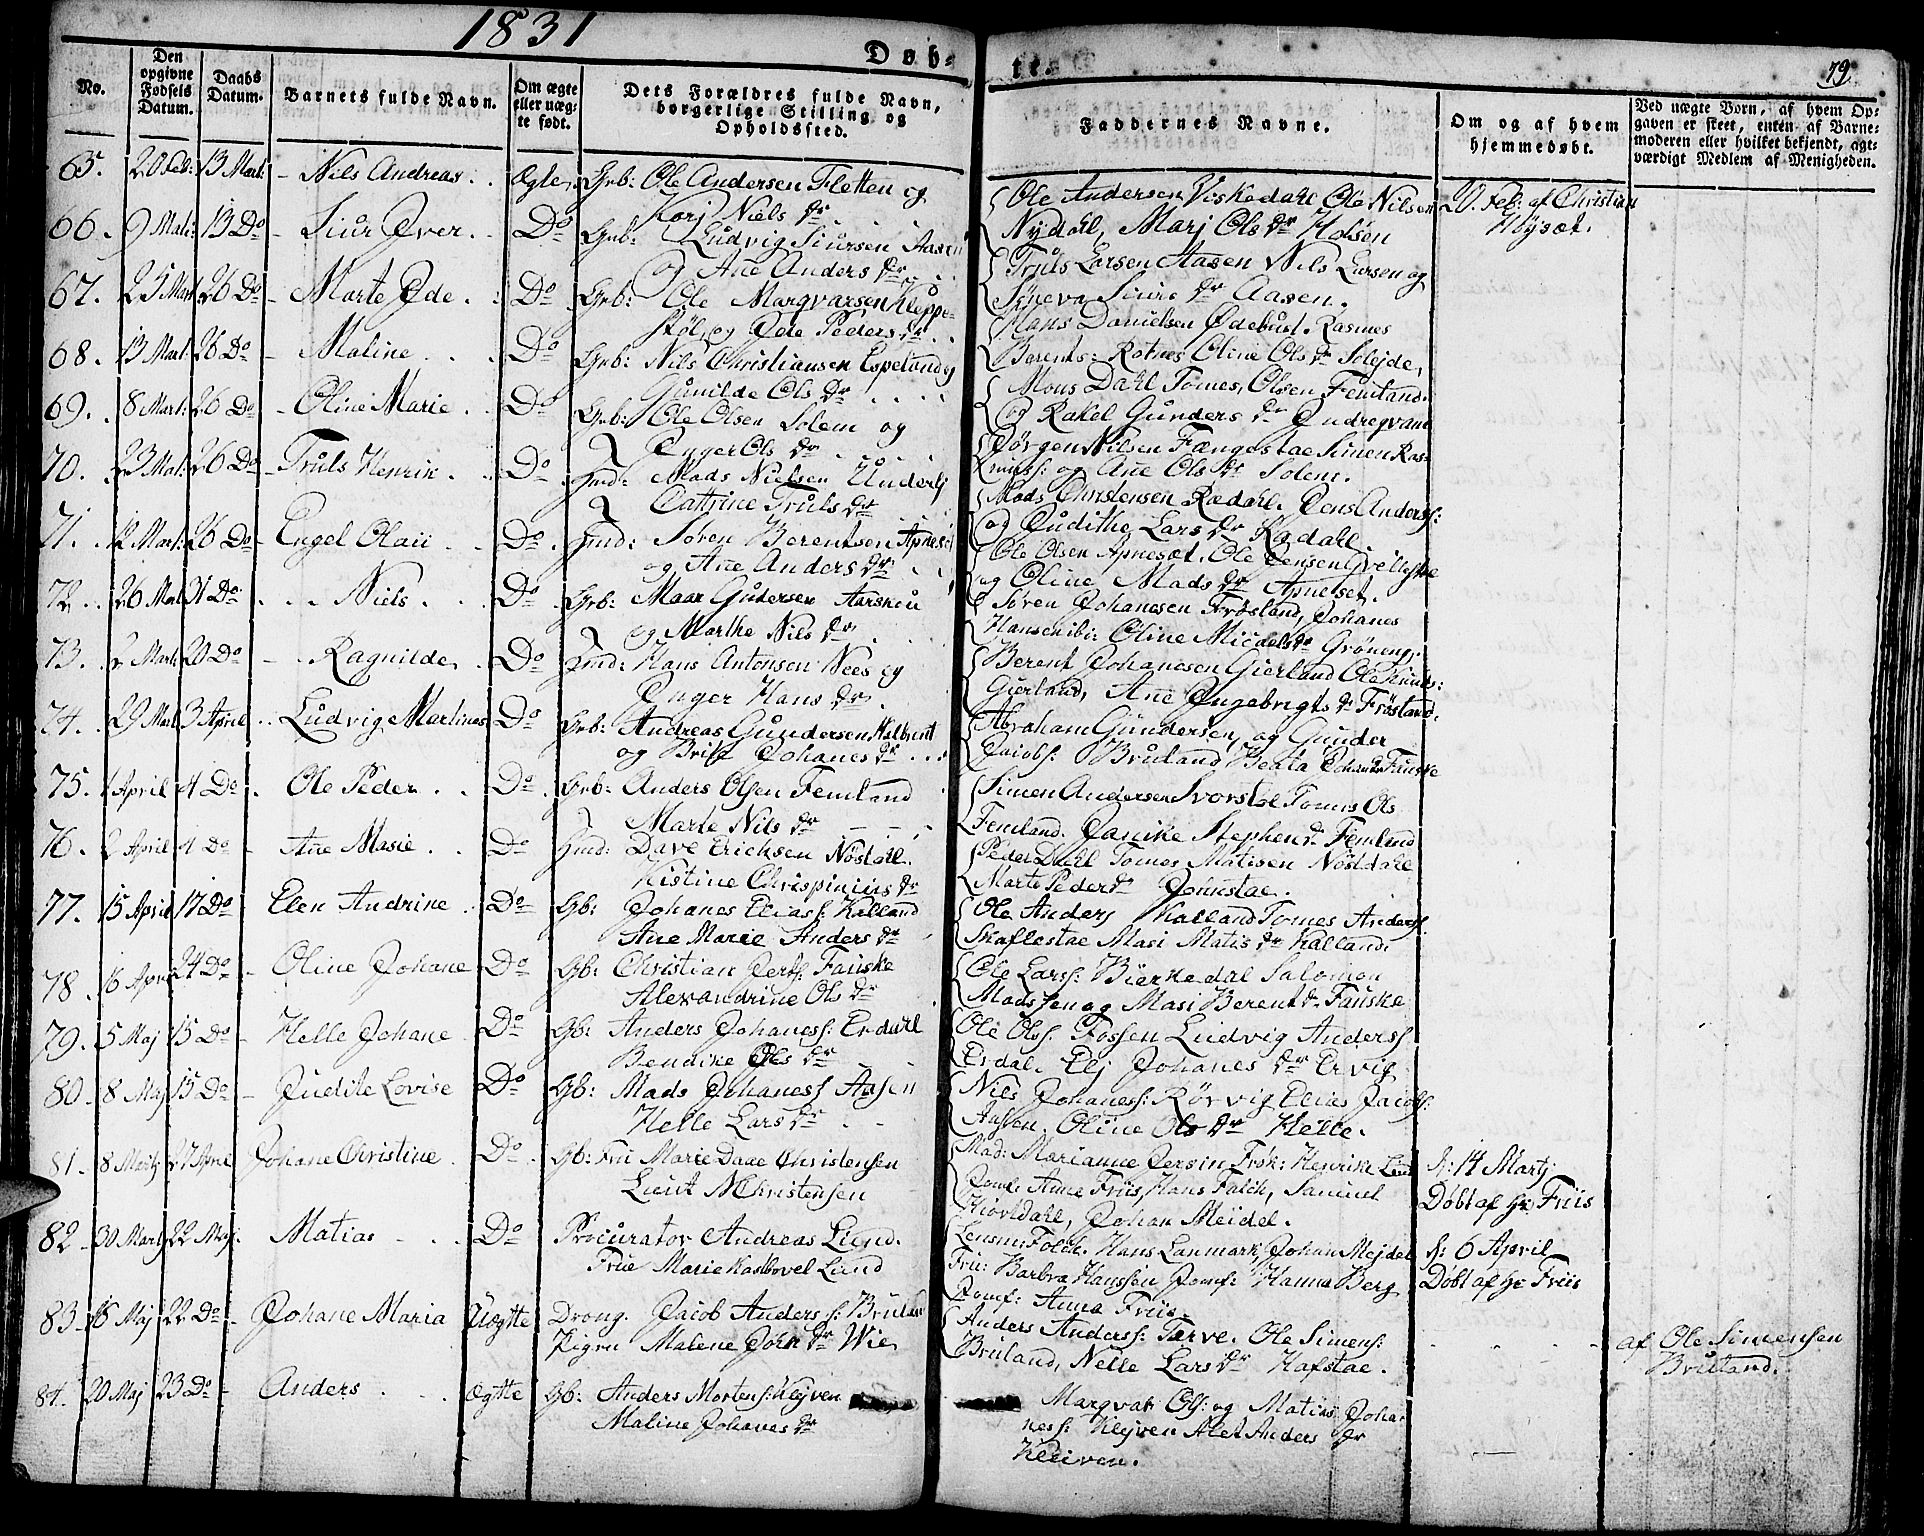 1831
Døb-
te.
79.
No.
Den opgivne Fødsels Datum.
Daabs Datum.
Barnets fulde Navn.
Om ægte eller uægte født.
Dets Forældres fulde Navn, borgerlige Stilling og Opholdssted.
Faddernes Navne.
Om og af hvem hjemmedøbt.
Ved uægte Børn, af hvem Opgaven er skeet, enten af Barnemoderen eller hvilket bekjendt, agtværdigt Medlem af Menigheden.
65. 20 Feb: 13 Mart: - Nils Andreas . . Ægte Grb: Ole Andersen Fletten og
Kari Niels Dr
Ole Andersen Viskedahl Ole Nilsen
Nydahl, Marj Ols Dr Holsen
20. Feb: af Christian
Høysæt.
66. 9 Mart: 13 Do - Siur Iver . . Do Grb: Ludvig Siursen Aasen
og Ane Anders Dr
Truls Larsen Aasen Nils Larsen og
Syneva Siurs Dr Aasen.
67. 25 Mart 26 Do - Marte Ide . : Do Grb: Ole Marqvarsen Kleppe-
støl, og Ide Peders Dr
Hans Danielsen Ødebust. Rasmus
Berents: Rotnes Oline Ols Dr Solejde,
68. 13 Mart 26 Do - Maline . . . Do Grb: Nils Christiansen Espeland og
Gunilde Ols Dr
Mons Dahl Tomes, Olsen Femland.
og Rakel Gunders Dr Indregvam
69. 8 Mart: 26 Do - Oline Marie . . Do Grb: Ole Olsen Solem og
Inger Ols Dr
Jørgen Nilsen Fængestae Simen Ras-
muss: og Ane Ols Dr Solem.
70. 23 Mat: 26 Do - Truls Henrik . . Do . Hmd: Mads Nielsen Underlj
Cathrine Truls Dr
Mads Christensen Rædahl. Jens Anderss:
og Judithe Lars Dr Rædahl.
71. 12 Mart: 26 Do - Engel Olaii . . Do . Hmd: Søren Berentsen Apnesæt
og Ane Anders Dr
Ole Olsen Apnesæt. Ole Jensen
og Oline Mads Dr Apneset.
72. . 26 Mat 31 Do . . . Niels . . . Do . Grb: Maas Gundersen Aarskou
og Marthe Nils Dr
Søren Johanesen Frøsland, Johanes
Hansen ibi: Oline Micdels Dr Grøneng.
73. . 2 Mart: 20 Do - . . Ragnilde . Do . Hmd: Hans Antonsen Nees og
Inger Hans Dr
Berent Johanesen Gierland Ole Knuds:
Gierland, Ane Ingebrigts Dr Frøsland.
74. . 29 Mart 3 April . . Ludvig Martinus Do Grb: Andreas Gundersen
og Britt Johanes Dr . . .
Abraham Gundersen, og Gunder
Jacobs: Bruland Beata Johans Dr Fauske
75. 1 April 4 Do . Ole Peder . . Do . Grb: Anders Olsen Femland
Marte Nils Dr
Simen Andersen Svorstøl Tomes Ols
Femland. Janike Stephens Dr Femland
76. 2 April 4 Do - Ane Marie . . Do Hmd: Dave Erichsen Nøstdall.
Kistine Chrispinius Dr
Peder Dahl Tomes Matisen Nøstdahl
Marte Peders Dr Jonnstae.
77. 15 April 17 Do - Elen Andrine . Do . Gb: Johanes Eliass: Kalland
Ane Marie Anders Dr
Ole Anders Kalland Tomes Anderss:
Skaflestae Masi Matis Dr Kalland.
78 . 16 April 24 Do - Oline Johane Do . Gb: Christian Perss: Fauske
Alexandrine Ols Dr
Ole Larss: Bierkedal Salomon
Madssen og Masi Berents Dr Fauske
79. 5 Maj 15 Do - Helle Johane Do Gb: Anders Johaness: Erdahl
Bendike Ols Dr
Ole Olss. Fossen Ludvig Anderss
Erdal. Elj Johanes Dr Ervig
80. 8 Maj 15 Do - Judite Lovise Do Gb: Mads Johaness Aasen
Helle Lars Dr
Nils Johaness: Rørvig Elias Jacobs:
Aasen. Oline Ols Dr Helle.
81. 8 Martj 27 April Johane Christine . Do . Gb: Fru Marie Daae Christensen
Lieut N Christensen
Mad: Marianne Jersin Frøk: Henrike Lind
Jomf: Anne Friis, Hans Falch, Samuel
Hiortdahl, Johan Meidel.
d: 14 Martj
Døbt af Hr Friis
82 - 30 Martj 22 Maj. Matias - . . Do Procurator Andreas Lund.
Frue Marie Lund
Lensm: Folch. Hans Lanmark, Johan Mejdel
Fru: Barbra Hanssen Jomf: Hanna Berg
Jomf: Anna Friis
d: 6 April
Døbt af Hr Friis
83 - 16 Maj 22 Do - Johane Maria Uægtte Dreng. Jacob Anderss: Bruland
Pigen Malene John Dr Wie
Anders Anderss: Tarve. Ole Simens:
Bruland, Nelle Lars Dr Hafstae.
af Ole Simensen
Bruland.
84. 20 Maj 23 Do - Anders . . . Ægtte Gb: Anders Mortens: Klejven
Maline Johanes Dr
Marqvar Ols: og Matias Joha-
ness: Klejven Alet Anders Dr
Kleiven.